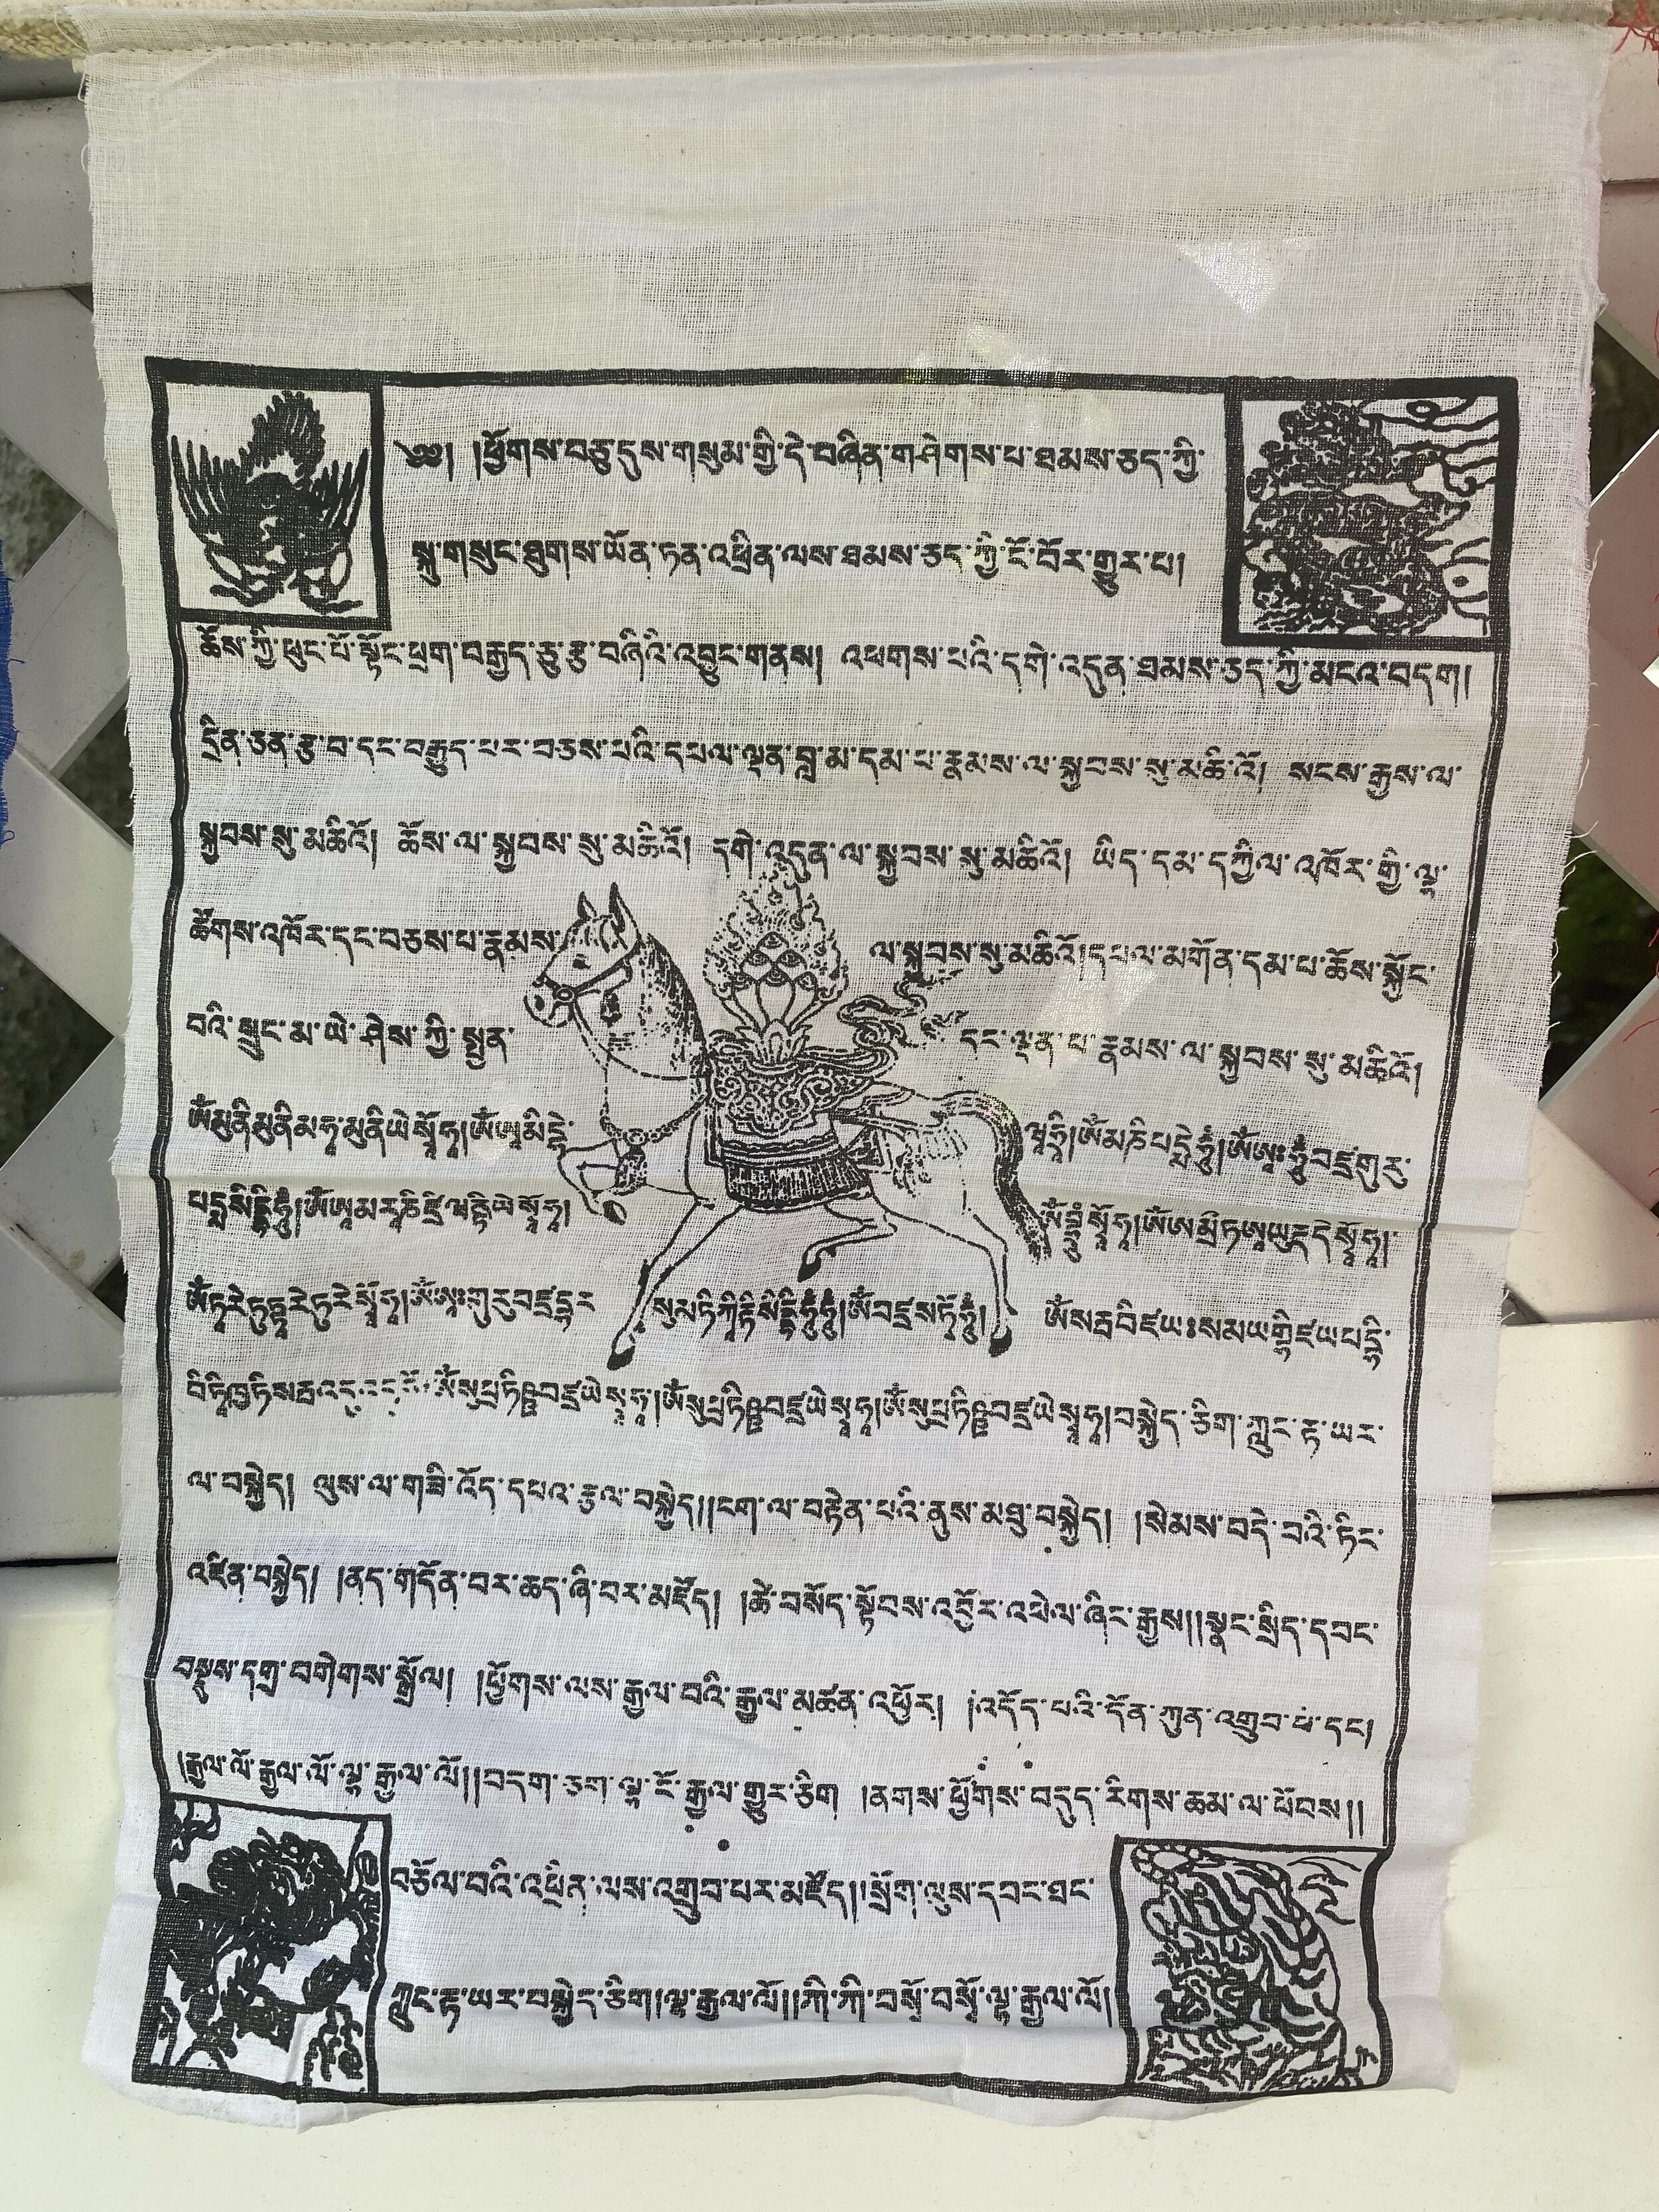 ༄༅། །ཕྱོགས་བཅུ་དུས་གསུམ་གྱི་དེ་བཞིན་གཤེགས་པ་ཐམས་ཅད་ཀྱི་
སྐུ་གསུང་ཐུགས་ཡོན་ཏན་འཕྲིན་ལས་ཐམས་ཅད་ཀྱི་ངོ་བོར་གྱུར་པ།
ཆོས་ཀྱི་ཕུང་པོ་སྟོང་ཕྲག་བརྒྱད་ཅུ་རྩ་བཞིའི་འབྱུང་གནས། འཕགས་པའི་དགེ་འདུན་ཐམས་ཅད་ཀྱི་མངའ་བདག།
དྲིན་ཅན་རྩ་བ་དང་བརྒྱུད་པར་བཅས་པའི་དཔལ་ལྡན་བླ་མ་དམ་པ་རྣམས་ལ་སྐྱབས་སུ་མཆི་འོ། སངས་རྒྱས་ལ་
སྐྱབས་སུ་མཆིའོ། ཆོས་ལ་སྐྱབས་སུ་མཆིའོ། དགེ་འདུན་ལ་སྐྱབས་སུ་མཆིའོ། ཡིད་དམ་དཀྱིལ་འཁོར་གྱི་ལྷ་
ཚོགས་འཁོར་དང་བཅས་པ་རྣམས་ ལ་སྐྱབས་སུ་མཆིའོ།དཔལ་མགོན་དམ་པ་ཆོས་སྐྱོང་
བའི་སྲུང་མ་ཡེ་ཤེས་ཀྱི་སྤྱན་ དང་ལྡན་པ་རྣམས་ལ་སྐྱབས་སུ་མཆིའོ།
ༀམུནིམུནིམཧཱམུནིཡེསྭཱཧཱ། ༀམཎིཔདྨེཧཱུྃ།ༀཨཱཿཧཱུྃབཛྲགུརུ་
པདྨསིདྡྷིཧཱུྃ།ༀཨཱམརཱཎིཛཱིཝནྟིཡེསྭཱཧཱ། སྭཱཧཱ།ༀཨམྲིཏཨཱཡུརྡདེསྭཱཧཱ།
ༀཏཱརེཏུཏྟཱརེཏུརེསྭཱཧཱ།ༀཨཱཿགུརུབཛྲདྷར སུམཏིཀཱིརྟིསིདྡྷིཧཱུྃཧཱུྃ།ༀབཛྲསཏྭཧཱུྃ།
ༀསུཔྲཏིཥྛབཛྲཡེསྭཱཧཱ།ༀསུཔྲཏིཥྛབཛྲཡེསྭཱཧཱ།ༀསུཔྲཏིཥྛབཛྲཡེསྭཱཧཱ།བསྐྱེད་ཅིག་ཀླུང་རྟ་ཡར་
ལ་བསྐྱེད། ལུས་ལ་གཟི་འོད་དཔའ་རྩལ་བསྐྱེད།།ངག་ལ་བརྟེན་པའི་ནུས་མཐུ་བསྐྱེད། །སེམས་བདེ་བའི་ཏིང་
འཛིན་བསྐྱེད། །ནད་གདོན་བར་ཆད་ཞི་བར་མཛོད། །ཚེ་བསོད་སྟོབས་འབྱོར་འཕེལ་ཞིང་རྒྱས།།སྣང་སྲིད་དབང་
བསྡུས་དགྲ་བགེགས་སྒྲོལ། །ཕྱོགས་ལས་རྒྱལ་བའི་རྒྱལ་མཚན་འཕྱོར། །འདོད་པའི་དོན་ཀུན་འགྲུབ་པ་དང།
།རྒྱལ་ལོ་རྒྱལ་ལོ་ལྷ་རྒྱལ་ལོ།།བདག་ཅག་ལྷ་ངོ་རྒྱལ་གྱུར་ཅིག །ནགས་ཕྱོགས་བདུད་རིགས་ཆམ་ལ་ཕོབས།།
བཅོལ་བའི་འཕྲིན་ལས་འགྲུབ་པར་མཛོད།།སྲོག་ལུས་དབང་ཐང་
ཀླུང་རྟ་ཡར་བསྐྱེད་ཅིག།ལྷ་རྒྱལ་ལོ།།ཀི་ཀི་བསྭོ་བསྭོ་ལྷ་རྒྱལ་ལོ།